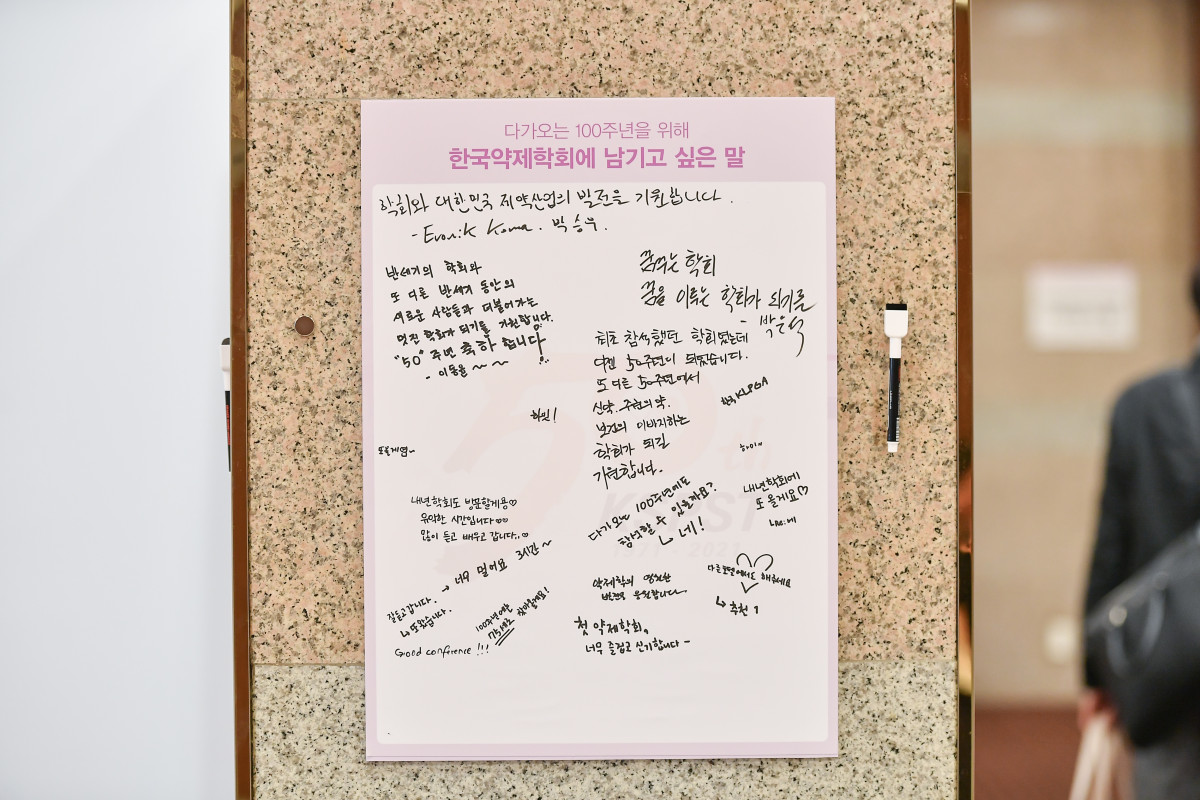 다가오는 100주년을 위해
한국약제학회에 남기고 싶은 말
학회와 대한민국 제약산업의 발전을 기원합니다.
- Evonik Korea. 박승우.
반세기의 학회와
또 다른 반세기 동안의
새로운 사람들과 더불어가는
멋진 학회가 되기를 기원합니다.
"50"주년 축하 합니다!
- 이동율 ~ ~
꿈꾸는 학회
꿈을 이루는 학회가 되기를
- 박은석
최초 참석했던 학회였는데
다시 50주년이 되었습니다.
또 다른 50주년에서
신약. 주현의 약.
보건의 이바지하는
학회가 되길
기원합니다.
한국 KLPGA
화잇!
또올게염~
하이~
내년학회도 방문할게용♡
유익한 시간입니다♡♡
많이 듣고 배우고 갑니다..♡
다가오는 100주년에도
참석할 수 있을까요?
↳ 네!
내년학회에
또 올게요♡
나도.에
→ 너무 멀어요 3시간~
잘듣고갑니다.
↳ 또왔습니다.
100주년에는
찾아올게요!
Good conference !!!
약제학의 영원한
발전을 응원합니다
다른호텔에서도 해주세요
↳ 추천 1
첫 약제학회,
너무 즐겁고 신기합니다 -
KPST
1971 - 2021